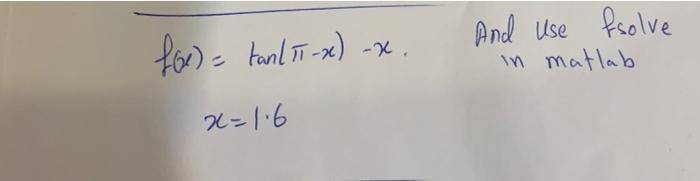 f(x) = tan(π-x) -x.
x=1.6
And Use fsolve
in matlab